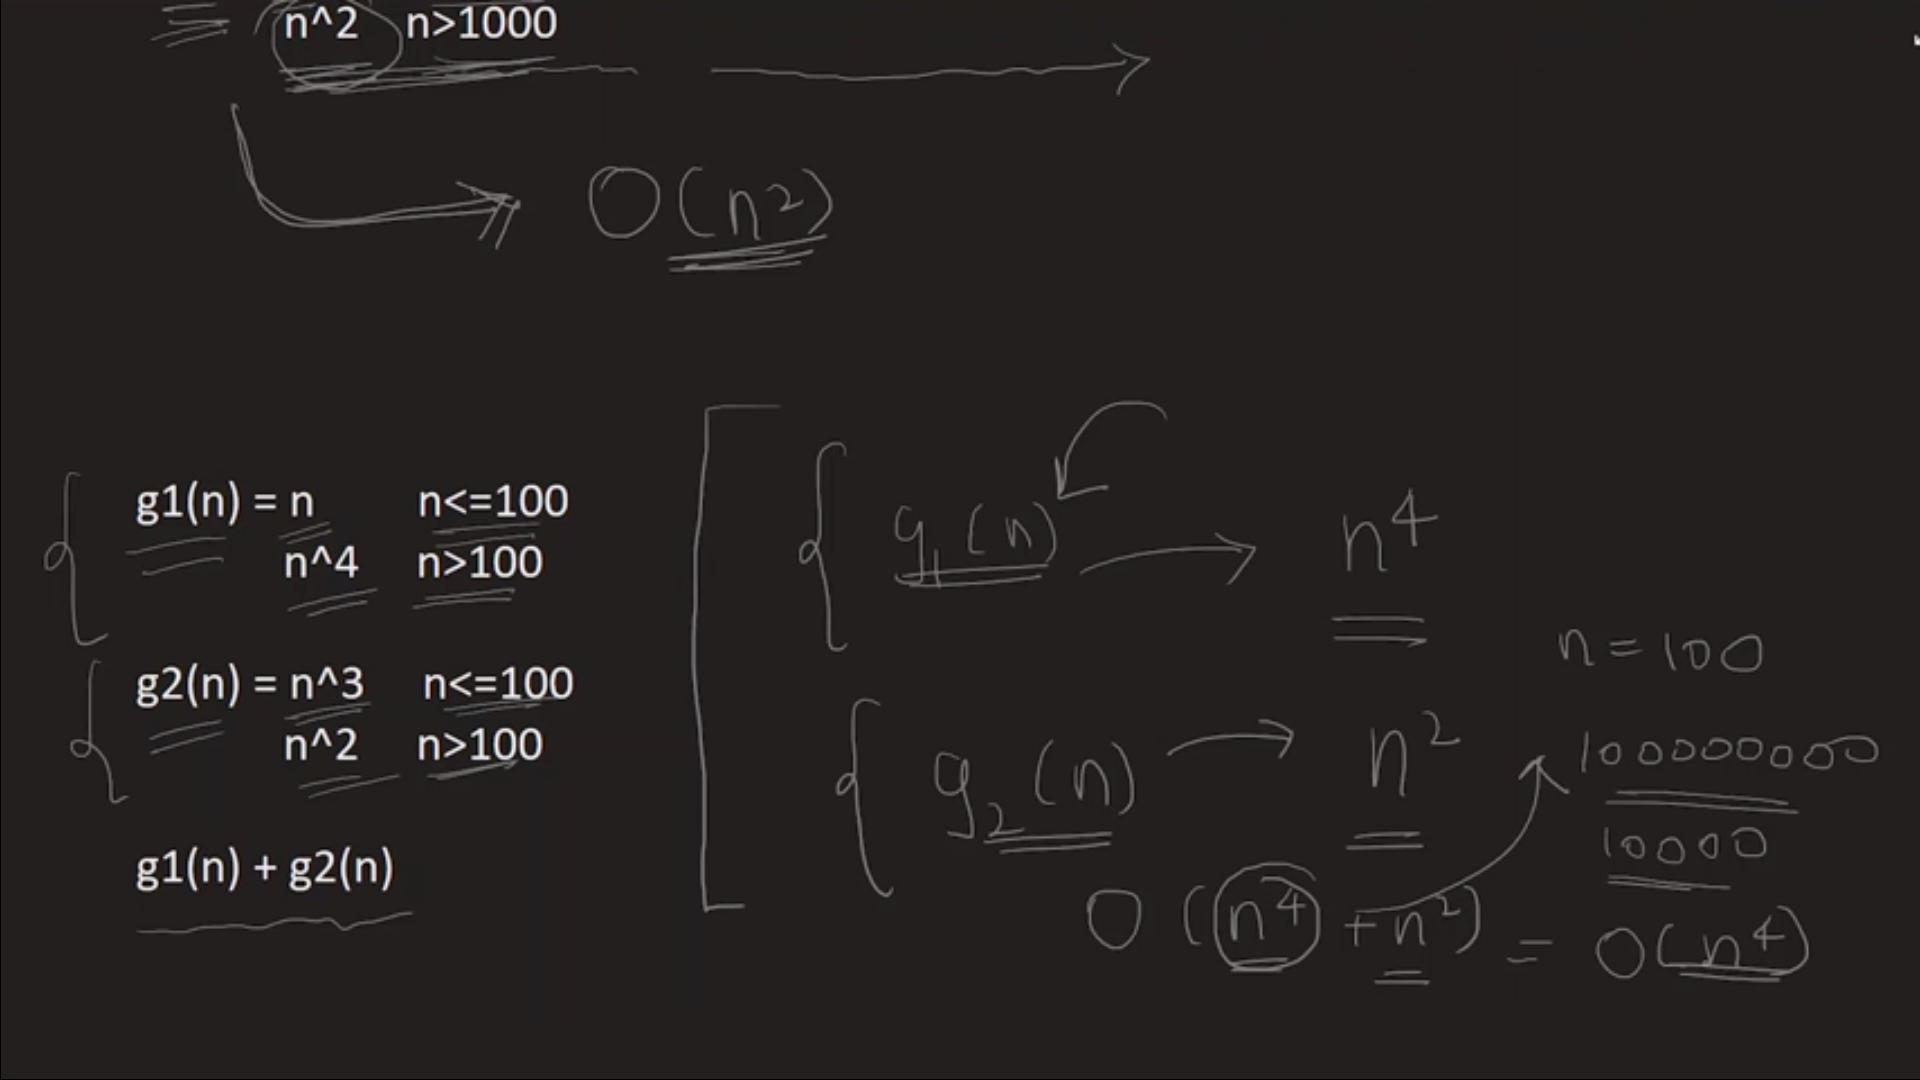 n^2 n>1000
O(n²)
g1(n) = n n<=100
n^4 n>100
g2(n) = n^3 n<=100
n^2 n>100
g1(n) + g2(n)
g₁(n) → n⁴
g₂(n) → n²
n = 100
100000000
10000
O(n⁴ + n²) = O(n⁴)